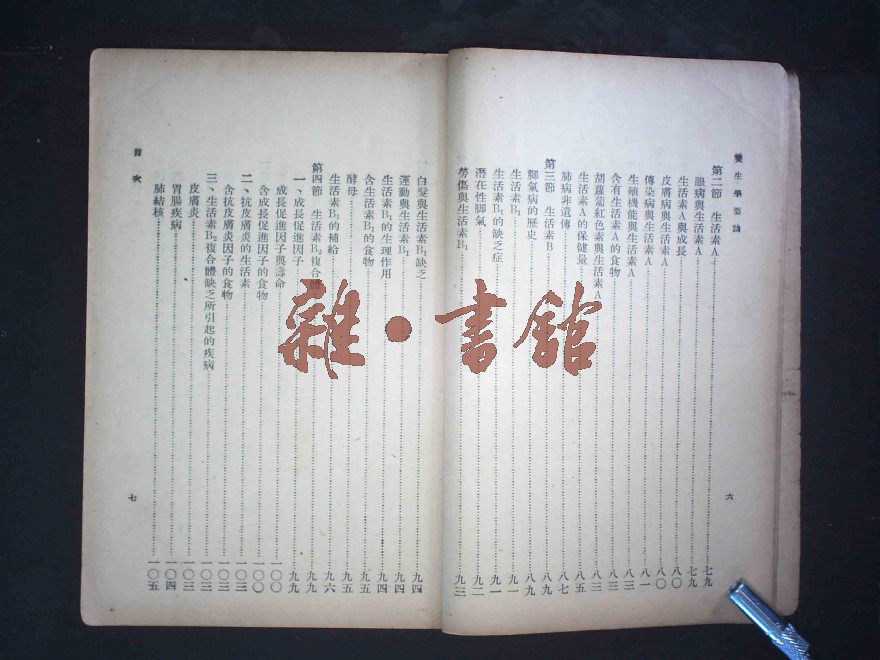 養生學要論
第二節 生活素A……七九
眼病與生活素A……七九
生活素A與成長……八〇
皮膚病與生活素A……八〇
傳染病與生活素A……八一
生殖機能與生活素A……八三
含有生活素A的食物……八三
胡蘿蔔紅色素與生活素A……八三
生活素A的保健量……八五
肺病非遺傳……八七
第三節 生活素B……八九
腳氣病的歷史……八九
生活素B₁……九一
生活素B₁的缺乏症……九一
潛在性腳氣……九二
勞傷與生活素B₁……九三
六
白髮與生活素B₁缺乏……九四
運動與生活素B₁……九四
生活素B₁的生理作用……九四
含生活素B₁的食物……九五
酵母……九五
生活素B₁的補給……九六
第四節 生活素B₂複合體……九九
一、成長促進因子……九九
成長促進因子與壽命……一〇〇
含成長促進因子的食物……一〇〇
二、抗皮膚炎的生活素……一〇三
含抗皮膚炎因子的食物……一〇三
三、生活素B₂複合體缺乏所引起的疾病……一〇三
皮膚炎……一〇三
胃腸疾病……一〇四
肺結核……一〇五
目次
七
雜·書館